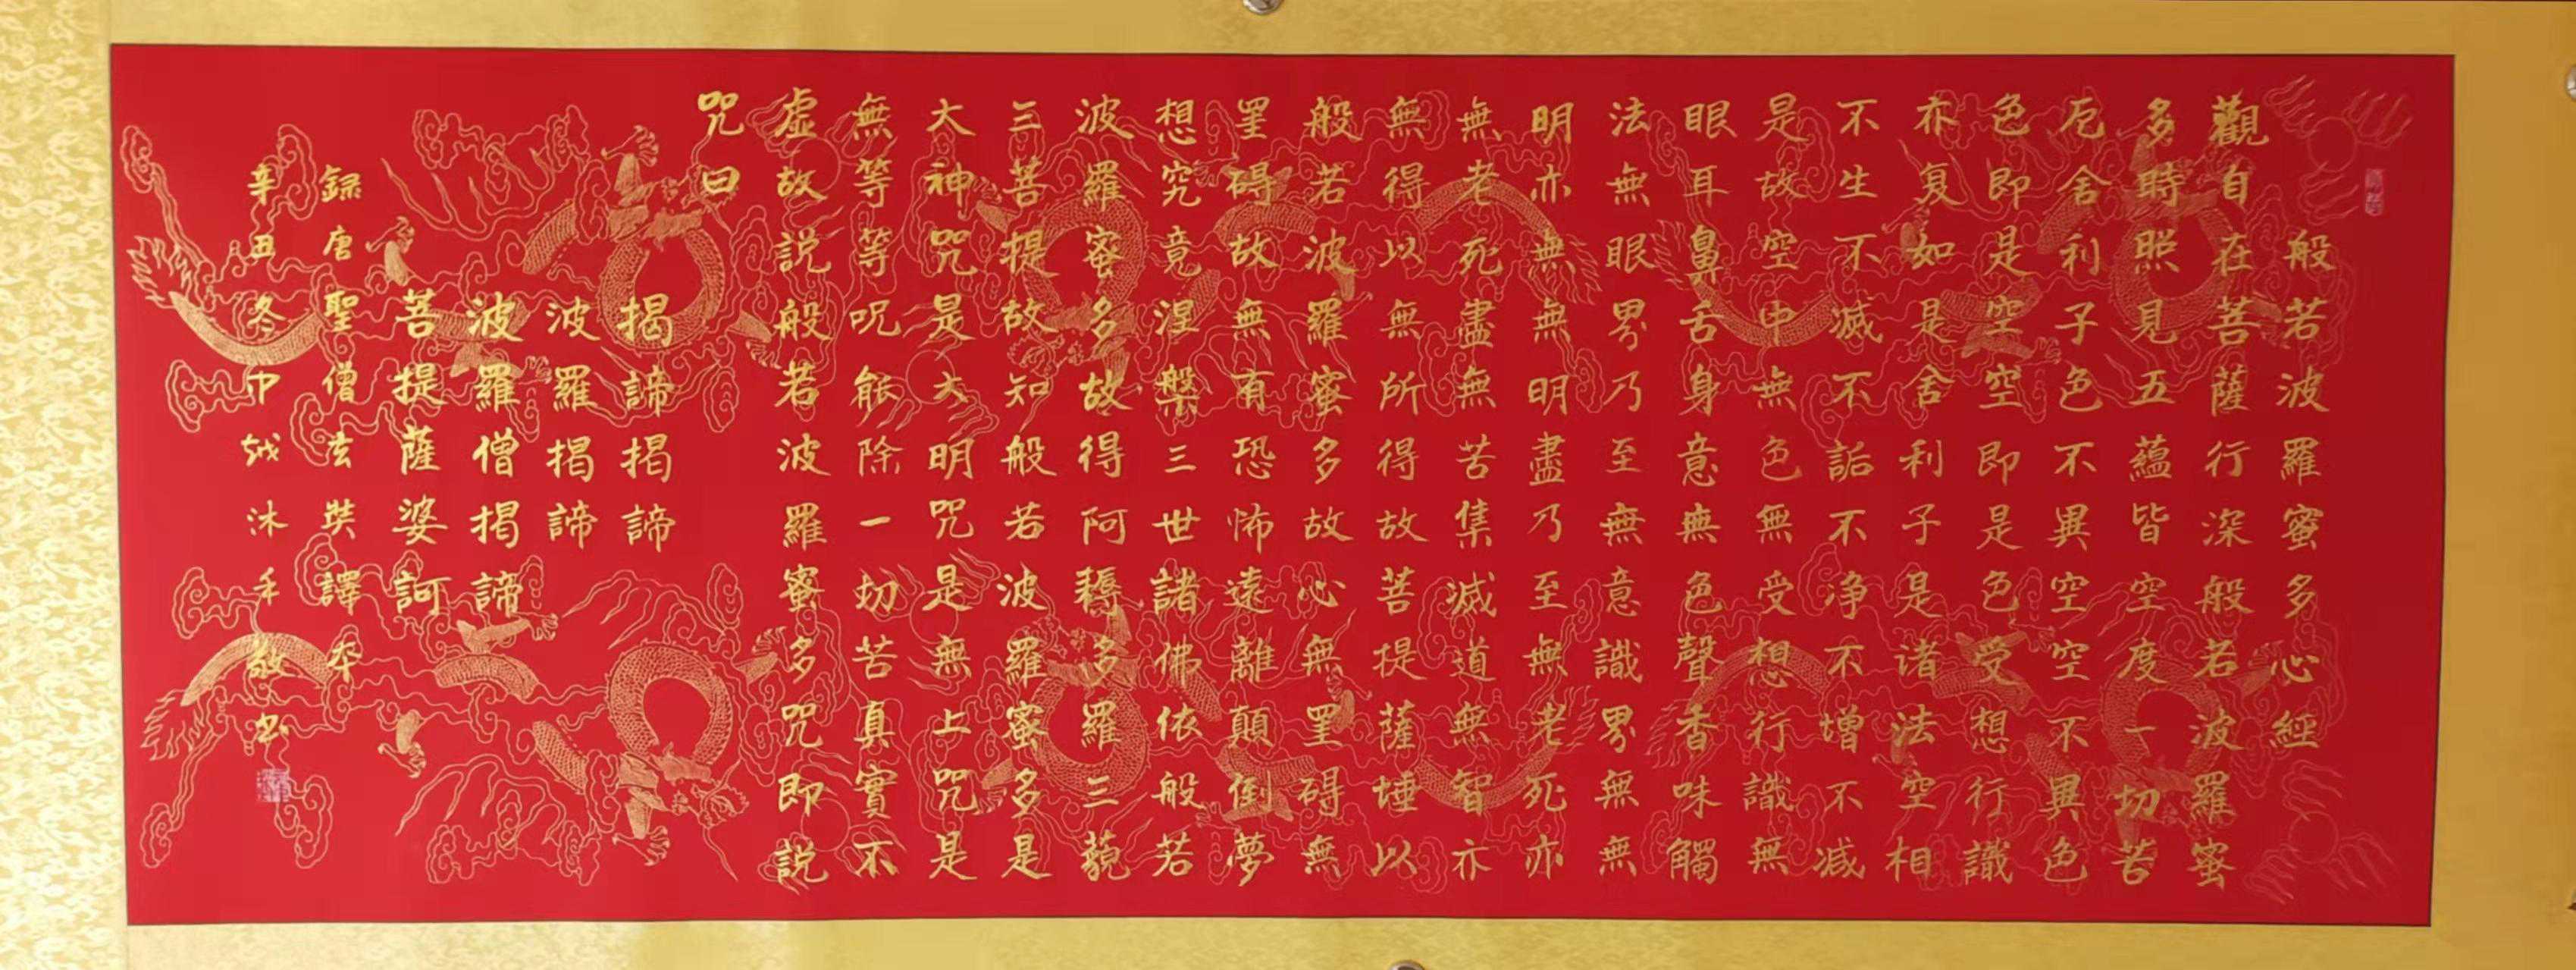 般若波羅蜜多心經
觀自在菩薩行深般若波羅蜜
多時照見五蘊皆空度一切苦
厄舍利子色不異空空不異色
色即是空空即是色受想行識
亦复如是舍利子是诸法空相
不生不滅不詬不净不增不减
是故空中無色無受想行識無
眼耳鼻舌身意無色聲香味觸
法無眼界乃至無意識界無無
明亦無無明盡乃至無老死亦
無老死盡無苦集滅道無智亦
無得以無所得故菩提薩埵以
般若波羅蜜多故心無罣碍無
罣碍故無有恐怖遠離顛倒夢
想究竟涅槃三世諸佛依般若
波羅蜜多故得阿耨多羅三藐
三菩提故知般若波羅蜜多是
大神咒是大明咒是無上咒是
無等等呪能除一切苦真實不
虛故説般若波羅蜜多咒即説
咒曰
揭諦揭諦
波羅揭諦
波羅僧揭諦
菩提薩婆訶
録唐聖僧玄奘譯本
辛丑冬巾越沐手敬书